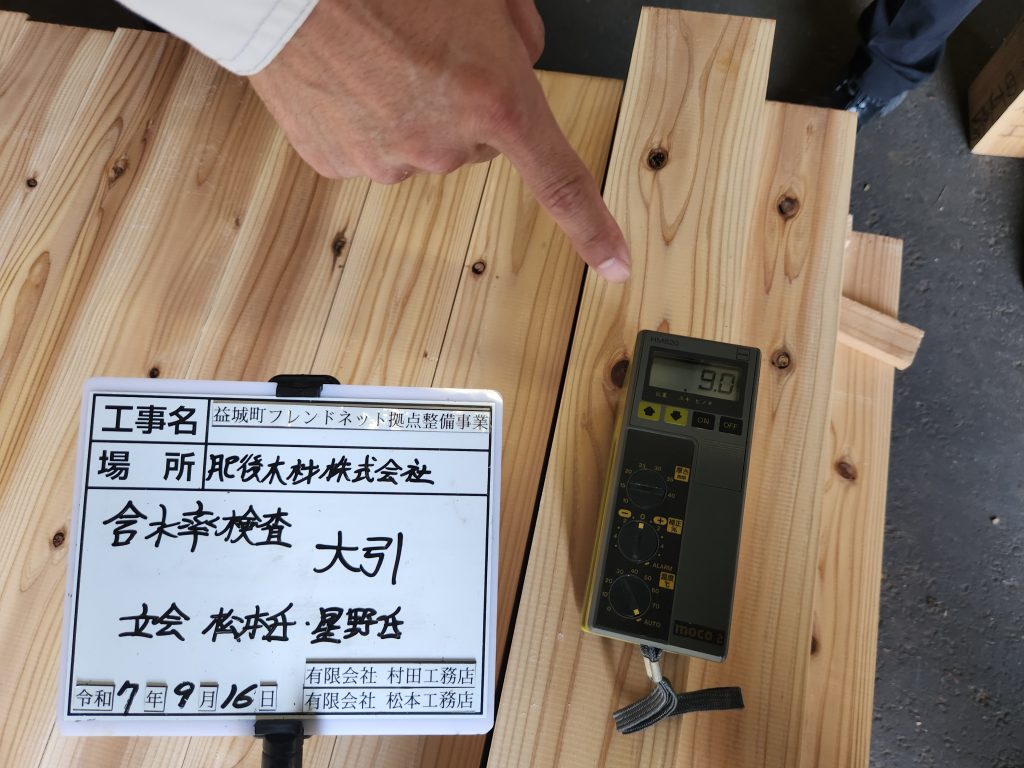 工事名 益城町フレンドネット拠点整備事業
場 所 肥後木材株式会社
含水率検査
大引
立会 松本氏・星野氏
有限会社 村田工務店
有限会社 松本工務店
令和7年9月16日
HM520
9.0
ON OFF
ALARM
AUTO
moco 2